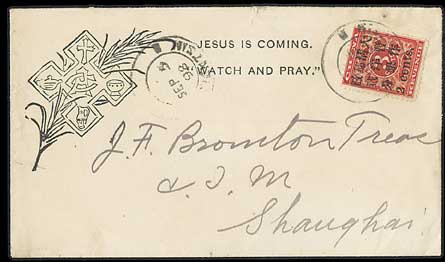 "JESUS IS COMING.
WATCH AND PRAY."
SEP
98
2 cents.
J. F. Broumton Treas
C. I. M
Shanghai.